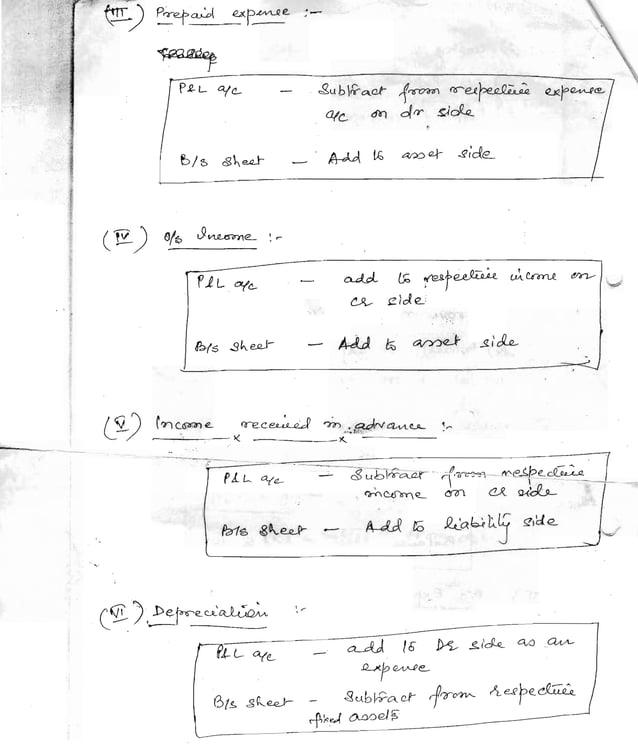 (III) Prepaid expense :-
P&L a/c - Subtract from respective expense
a/c on dr side
B/s sheet - Add to asset side
(IV) O/s Income :-
P&L a/c - add to respective income on
cr side
B/s sheet - Add to asset side
(V) Income received in advance :-
P&L a/c - Subtract from respective
income on cr side
B/s sheet - Add to liability side
(VI) Depreciation :-
P&L a/c - add to Dr side as an
expense
B/s sheet - Subtract from respective
fixed assets